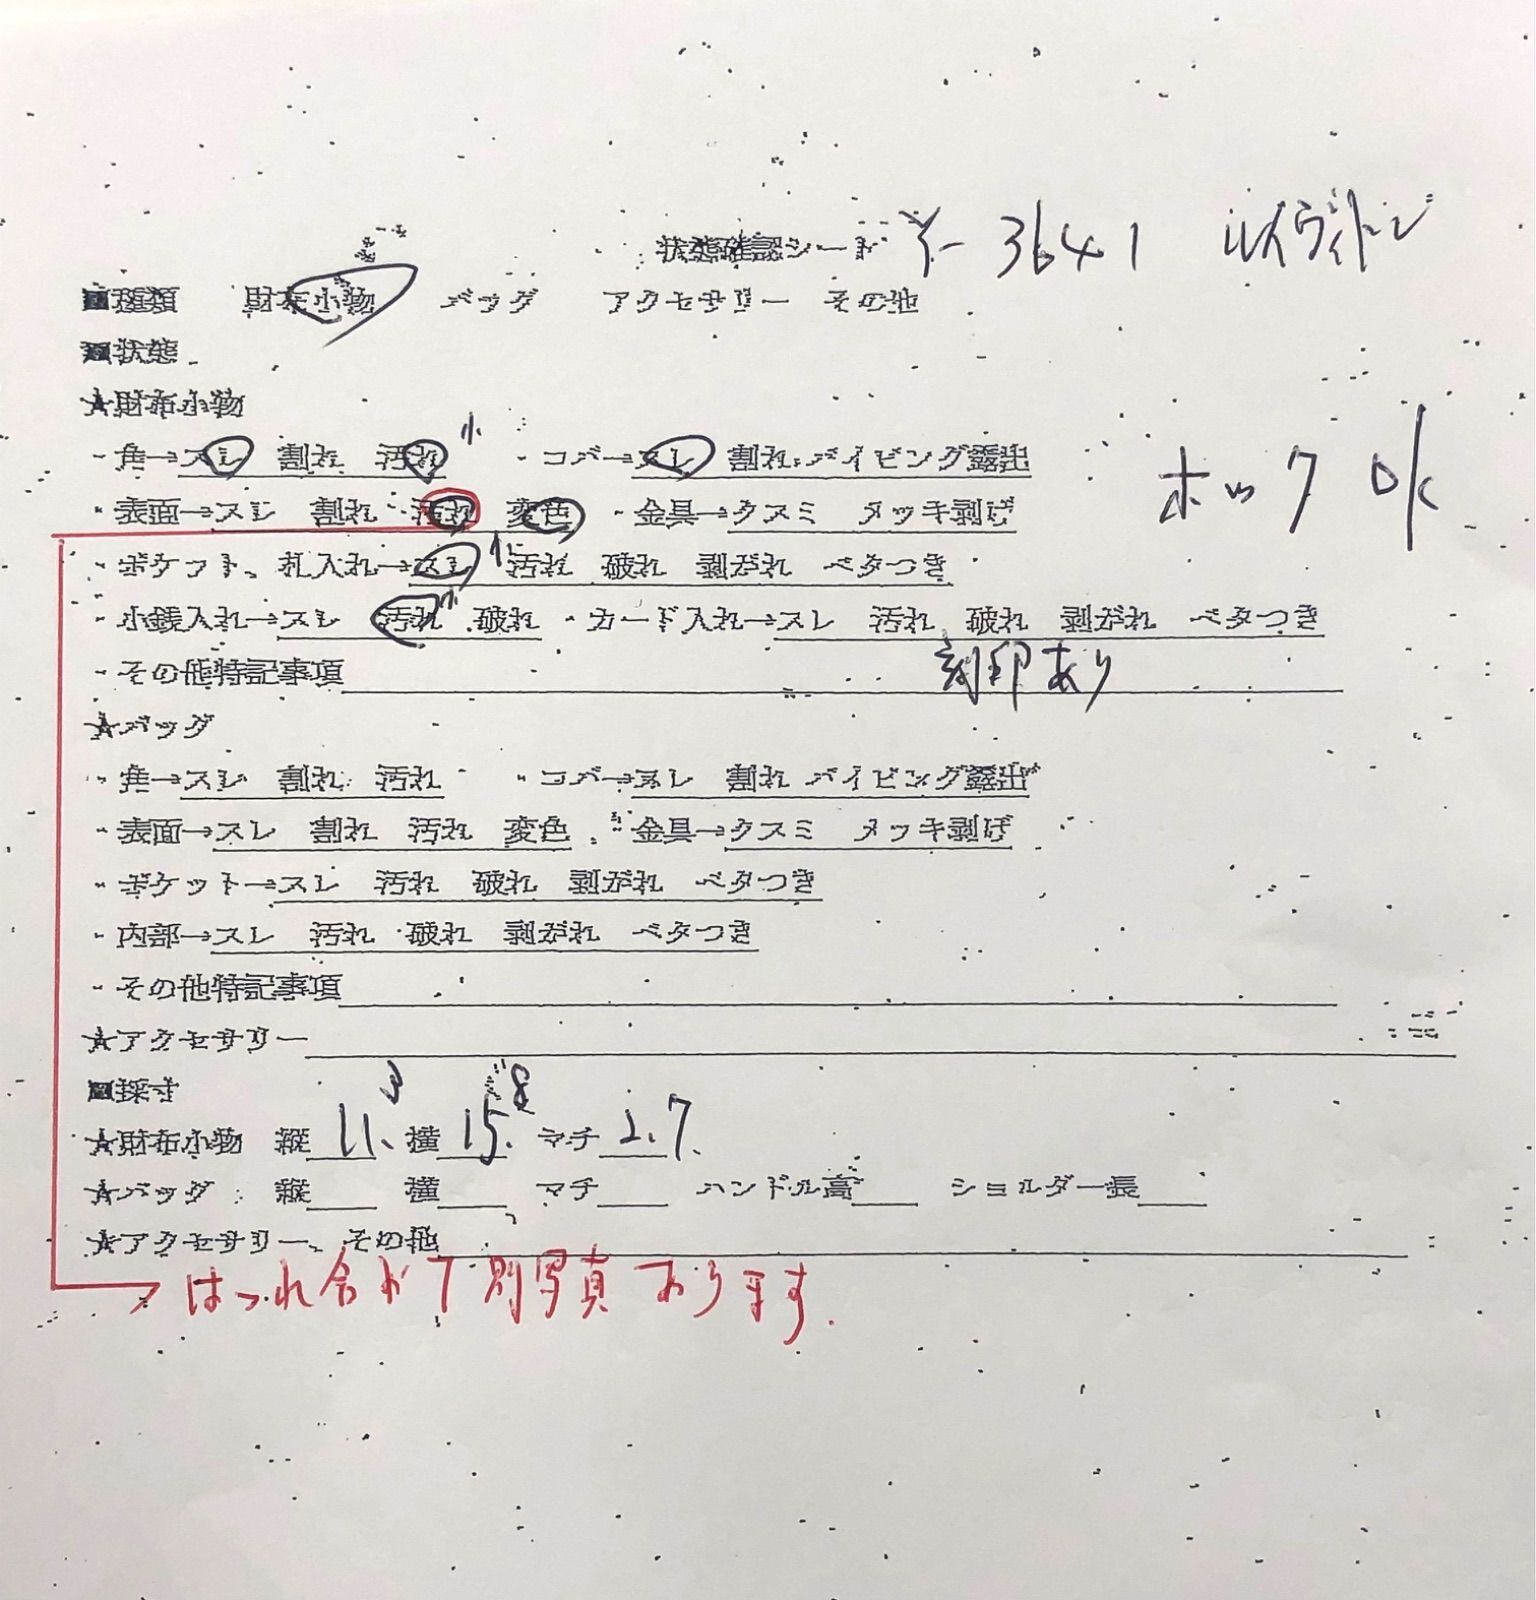 状態確認シート Y-3641 ルイヴィトン
■種類 財布小物 バッグ アクセサリー その他
■状態
★財布小物
・角→スレ 割れ 汚れ 小 ・コバ→スレ 割れ パイピング露出
ホック OK
・表面→スレ 割れ 汚れ 変色 ・金具→クスミ メッキ剥げ
・ポケット、札入れ→スレ 小 汚れ 破れ 剥がれ ベタつき
・小銭入れ→スレ 汚れ 小 破れ ・カード入れ→スレ 汚れ 破れ 剥がれ ベタつき
・その他特記事項 刻印あり
★バッグ
・角→スレ 割れ 汚れ ・コバ→スレ 割れ パイピング露出
・表面→スレ 割れ 汚れ 変色 ・金具→クスミ メッキ剥げ
・ポケット→スレ 汚れ 破れ 剥がれ ベタつき
・内部→スレ 汚れ 破れ 剥がれ ベタつき
・その他特記事項
★アクセサリー
■採寸
★財布小物 縦 11.3 横 15.8 マチ 2.7
★バッグ 縦 横 マチ ハンドル高 ショルダー長
★アクセサリー、その他
別写真あります.